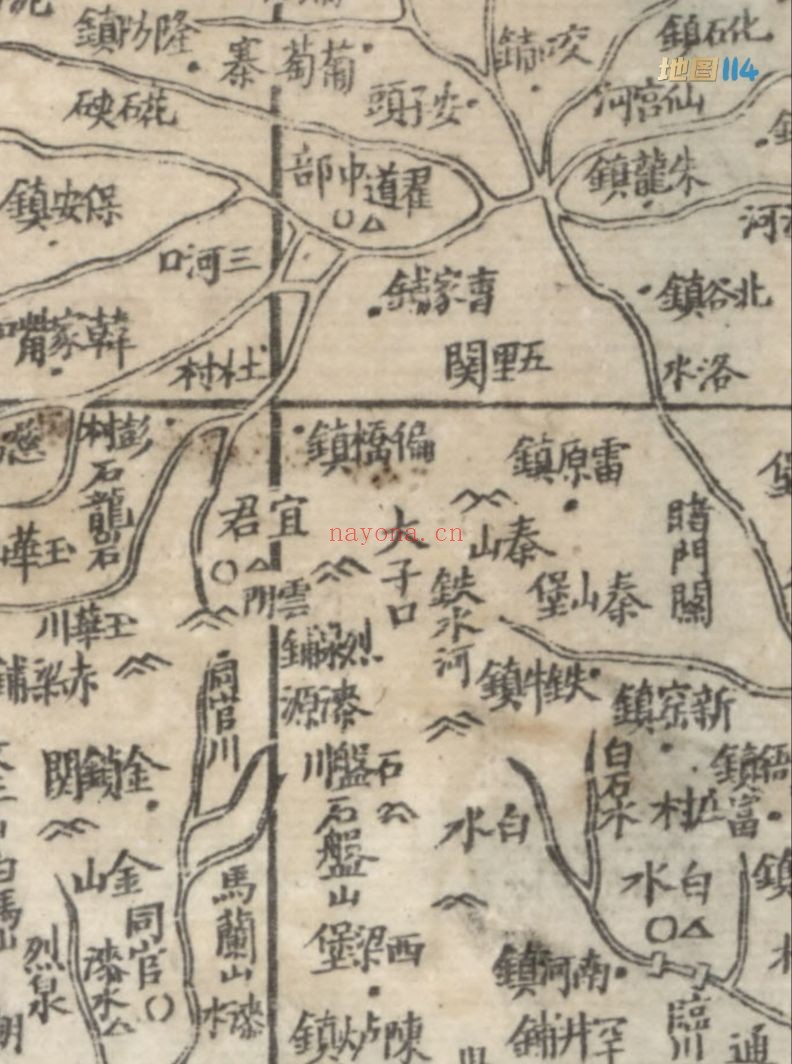 隆防鎮
葡萄寨
化石鎮
地图114
花石硤
安子頭
仙宮河
中部
翟道
朱龍鎮
保安鎮
三河口
曹家鋪
北谷鎮
韓家嘴
五里關
杜村
洛水
彭村
偏橋鎮
雷原鎮
石龍石
宜君
大子口
秦山
睹門關
nayona.cn
玉華
雲門
鉄水河
秦山堡
玉華川
赤梁鋪
漆源
鉄牛鎮
新窑鎮
同官川
金鎖關
石盤川
白石水
白水
石盤山
金山
馬蘭山
白水
同官
漆水
烈泉
西梁堡
南河鎮
漆水
臨川
陳炉鎮
罕井鋪
通